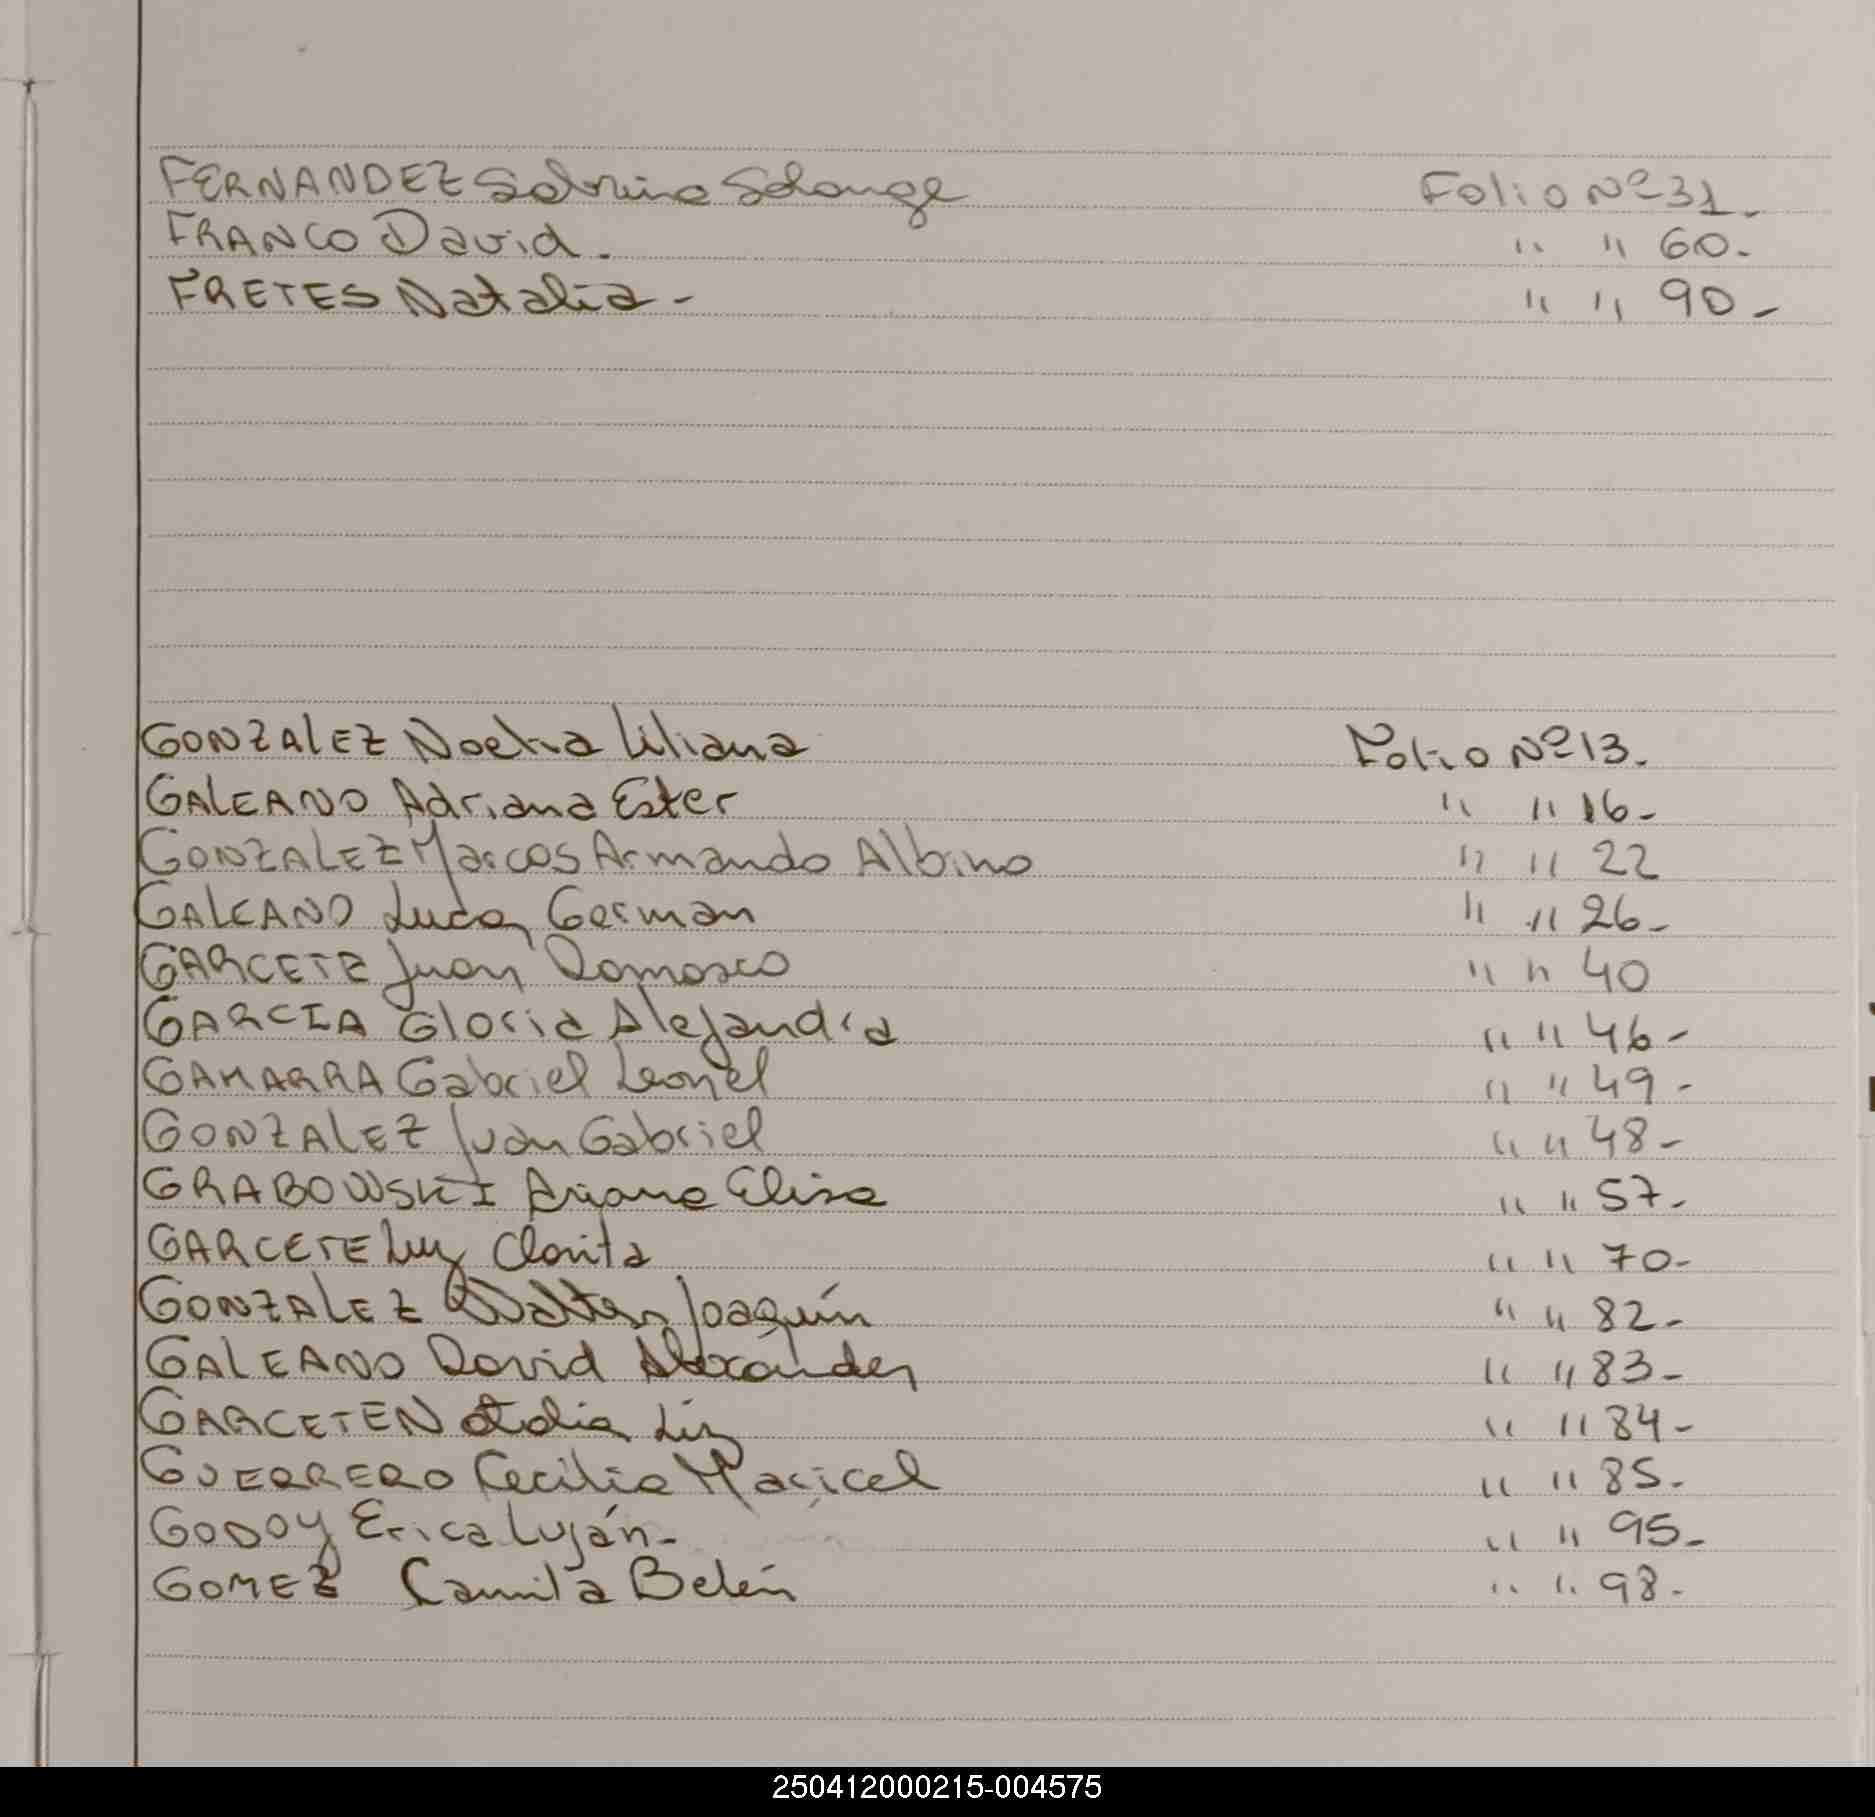 FERNANDEZ Sabrina Solange Folio Nº 31.
FRANCO David. " " 60.
FRETES Natalia - " " 90 -
GONZALEZ Noelia Liliana Folio Nº 13.
GALEANO Adriana Ester " " 16 -
GONZALEZ Marcos Armando Albino " " 22
GALEANO Lucas German " " 26 -
GARCETE Juan Damasco " " 40
GARCIA Gloria Alejandra " " 46 -
GAMARRA Gabriel Leonel " " 49 -
GONZALEZ Juan Gabriel " " 48 -
GRABOWSKI Ariana Elisa " " 57 -
GARCETE Luz Clarita " " 70 -
GONZALEZ Walter Joaquín " " 82 -
GALEANO David Alexander " " 83 -
GARCETE Natalia Liz " " 84 -
GUERRERO Cecilia Maricel " " 85 -
GODOY Erica Luján - " " 95 -
GOMEZ Camila Belén " " 98 -
250412000215-004575